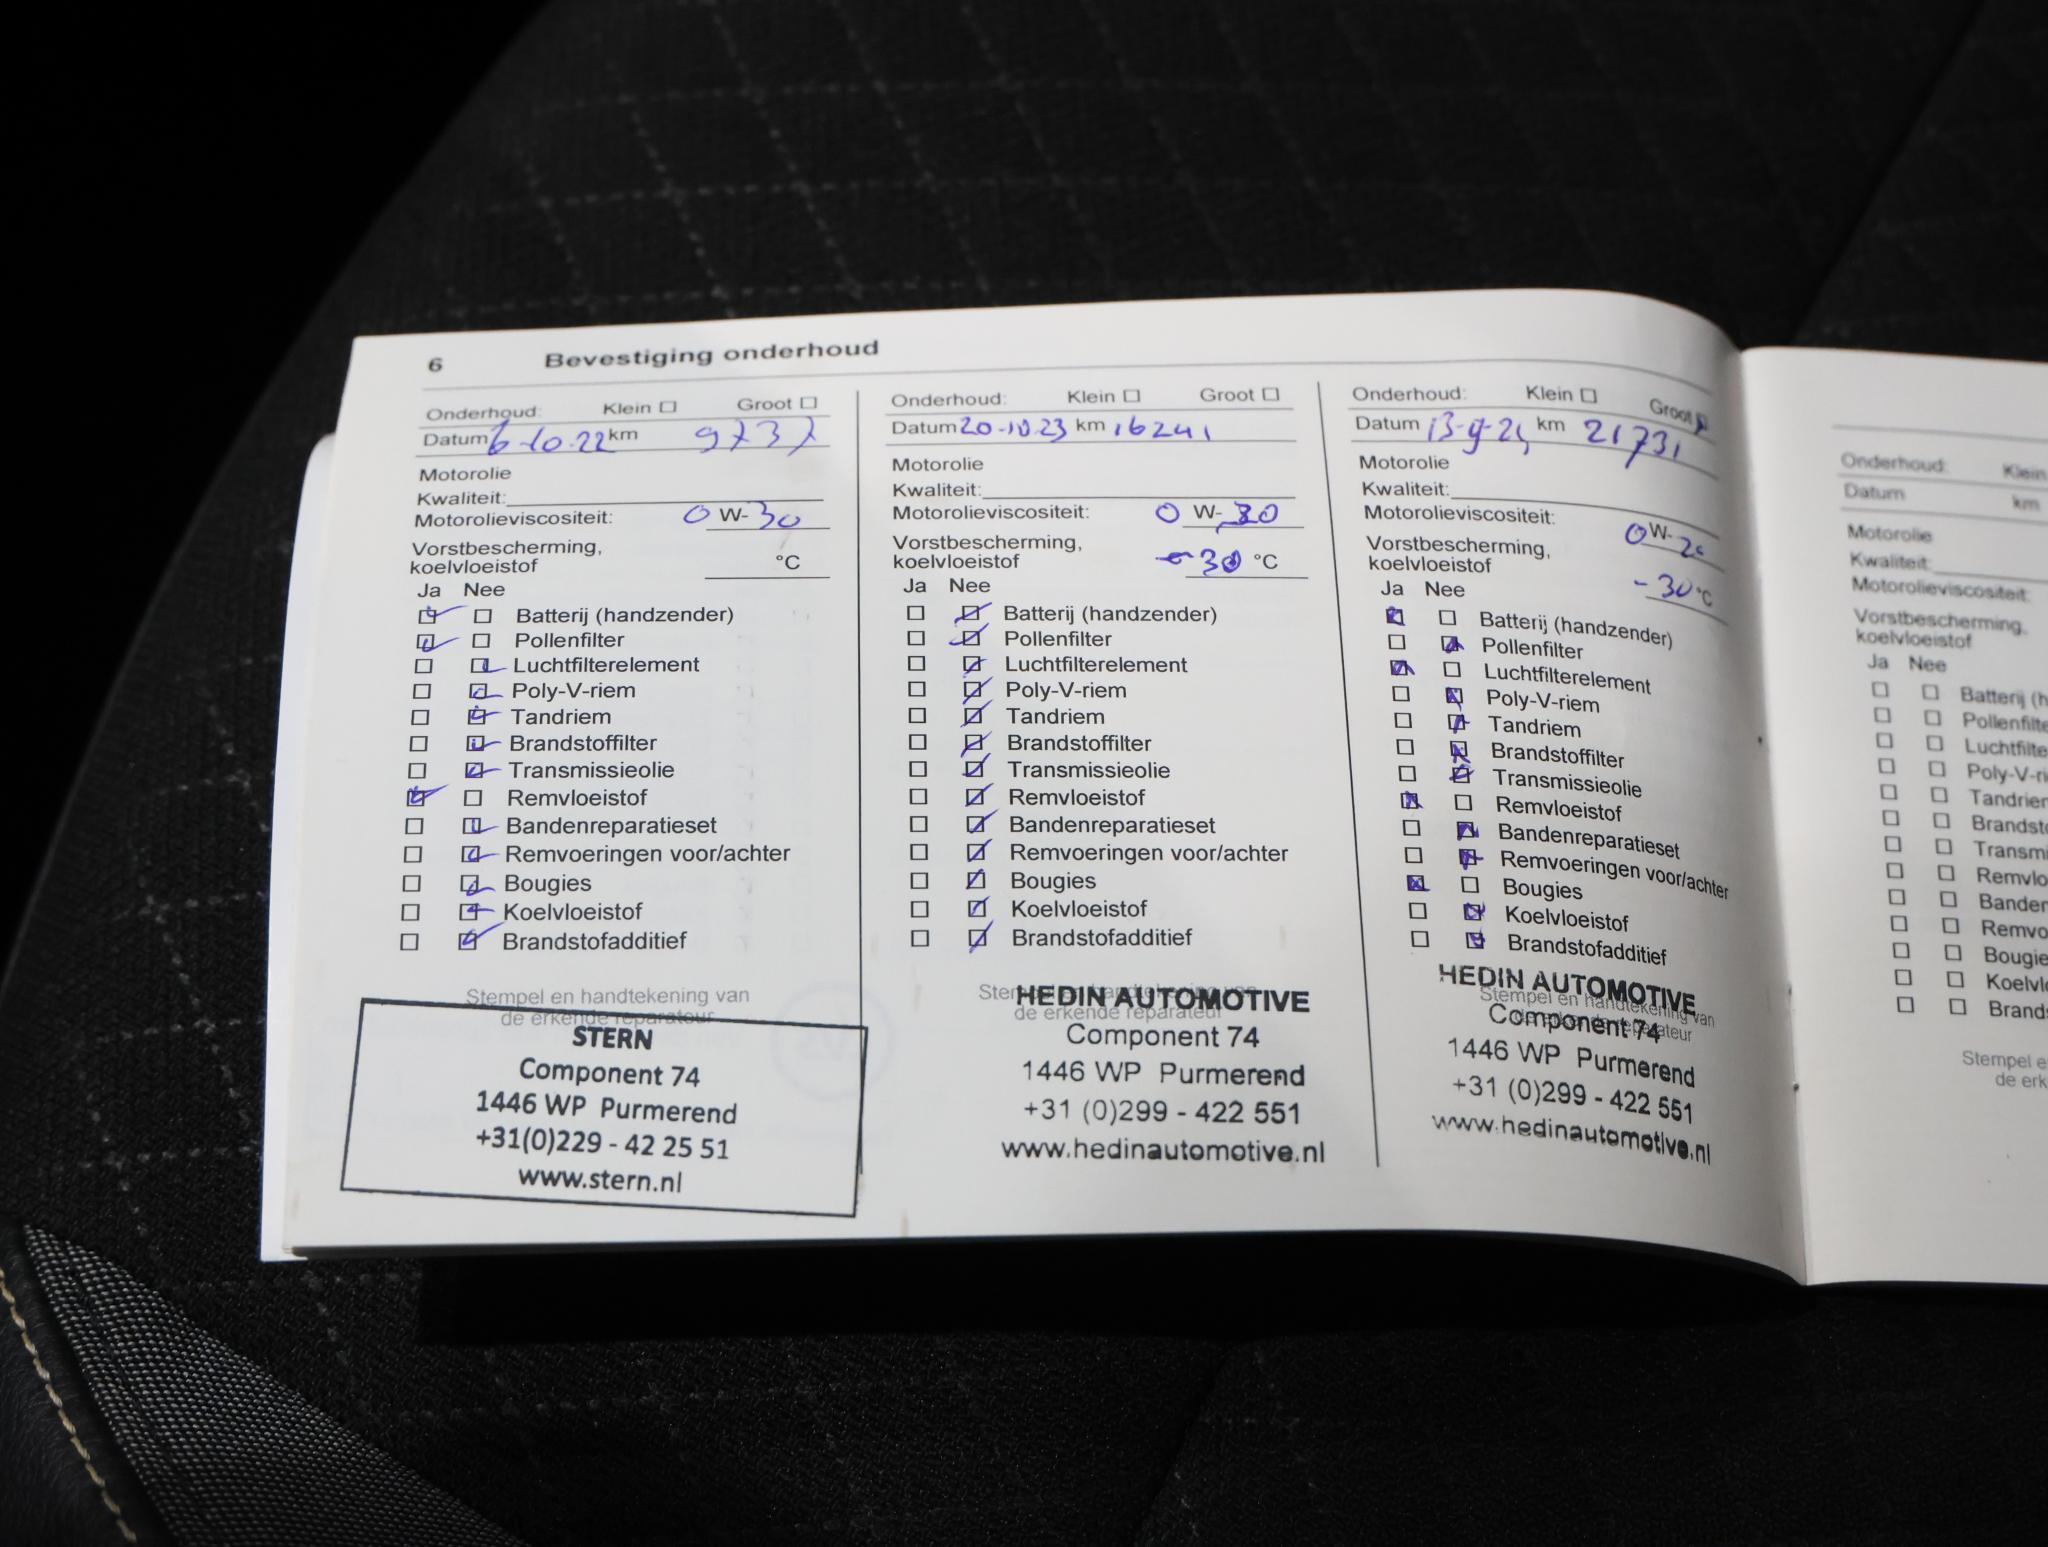 6 Bevestiging onderhoud
Onderhoud: Klein Groot
Datum 6-10-22 km 9737
Motorolie
Kwaliteit:
Motorolieviscositeit: 0 W-30
Vorstbescherming,
koelvloeistof °C
Ja Nee
Batterij (handzender)
Pollenfilter
Luchtfilterelement
Poly-V-riem
Tandriem
Brandstoffilter
Transmissieolie
Remvloeistof
Bandenreparatieset
Remvoeringen voor/achter
Bougies
Koelvloeistof
Brandstofadditief
Stempel en handtekening van
de erkende reparateur
STERN
Component 74
1446 WP Purmerend
+31(0)229 - 42 25 51
www.stern.nl
Onderhoud: Klein Groot
Datum 20-10-23 km 16241
Motorolie
Kwaliteit:
Motorolieviscositeit: 0 W-
Vorstbescherming,
koelvloeistof -30 °C
Ja Nee
Batterij (handzender)
Pollenfilter
Luchtfilterelement
Poly-V-riem
Tandriem
Brandstoffilter
Transmissieolie
Remvloeistof
Bandenreparatieset
Remvoeringen voor/achter
Bougies
Koelvloeistof
Brandstofadditief
Stempel en handtekening van
de erkende reparateur
HEDIN AUTOMOTIVE
Component 74
1446 WP Purmerend
+31 (0)299 - 422 551
www.hedinautomotive.nl
Onderhoud: Klein Groot
Datum km 21731
Motorolie
Kwaliteit:
Motorolieviscositeit: 0 W-20
Vorstbescherming,
koelvloeistof -30 °C
Ja Nee
Batterij (handzender)
Pollenfilter
Luchtfilterelement
Poly-V-riem
Tandriem
Brandstoffilter
Transmissieolie
Remvloeistof
Bandenreparatieset
Remvoeringen voor/achter
Bougies
Koelvloeistof
Brandstofadditief
Stempel en handtekening van
de erkende reparateur
HEDIN AUTOMOTIVE
Component 74
1446 WP Purmerend
+31 (0)299 - 422 551
www.hedinautomotive.nl
Onderhoud: Klein
Datum km
Motorolie
Kwaliteit:
Motorolieviscositeit:
Vorstbescherming,
koelvloeistof
Ja Nee
Batterij (h
Pollenfilte
Luchtfilte
Poly-V-ri
Tandrien
Brandsto
Transmi
Remvlo
Banden
Remvo
Bougie
Koelvlo
Brands
Stempel e
de erk